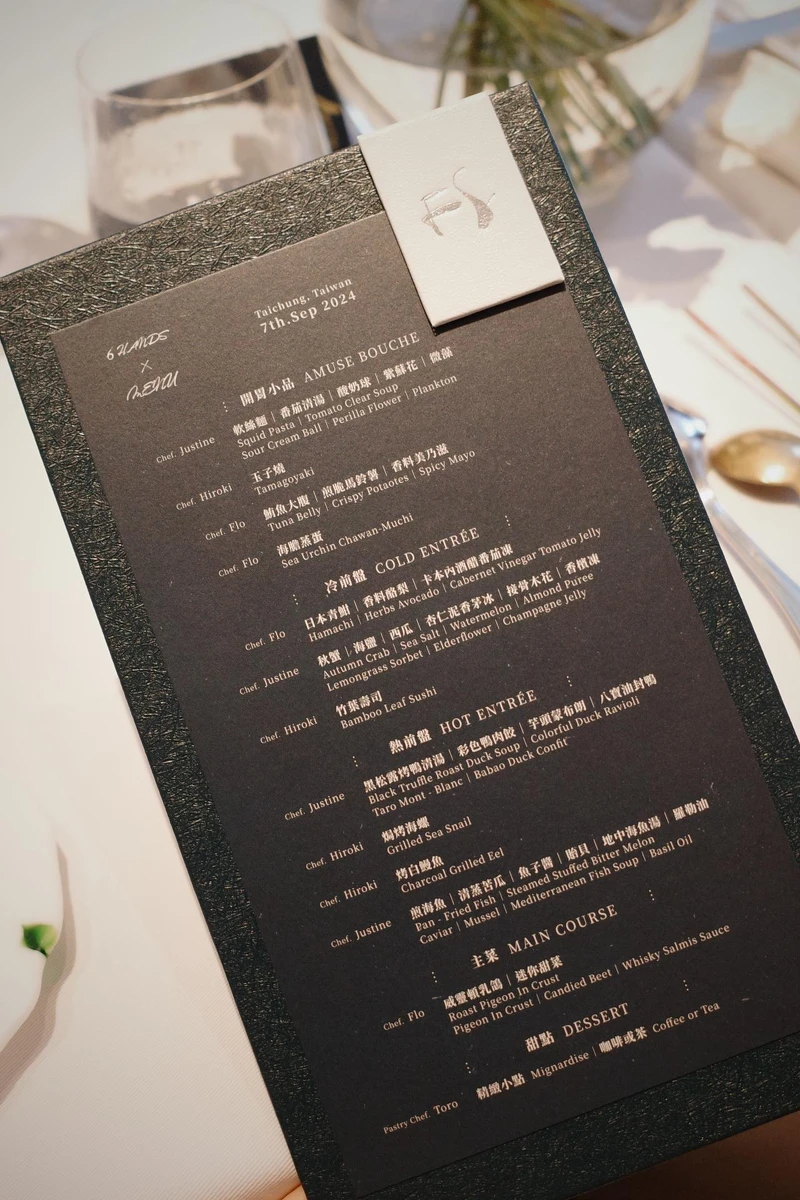 FS
6 HANDS
×
MENU
Taichung, Taiwan
7th.Sep 2024
開胃小品 AMUSE BOUCHE
Chef. Justine
軟絲麵｜番茄清湯｜酸奶球｜紫蘇花｜微藻
Squid Pasta | Tomato Clear Soup
Sour Cream Ball | Perilla Flower | Plankton
Chef. Hiroki
玉子燒
Tamagoyaki
Chef. Flo
鮪魚大腹｜煎脆馬鈴薯｜香料美乃滋
Tuna Belly | Crispy Potaotes | Spicy Mayo
Chef. Flo
海膽蒸蛋
Sea Urchin Chawan-Muchi
冷前盤 COLD ENTRÉE
Chef. Flo
日本青魽｜香料酪梨｜卡本內酒醋番茄凍
Hamachi | Herbs Avocado | Cabernet Vinegar Tomato Jelly
Chef. Justine
秋蟹｜海鹽｜西瓜｜杏仁泥香茅冰｜接骨木花｜香檳凍
Autumn Crab | Sea Salt | Watermelon | Almond Puree
Lemongrass Sorbet | Elderflower | Champagne Jelly
Chef. Hiroki
竹葉壽司
Bamboo Leaf Sushi
熱前盤 HOT ENTRÉE
Chef. Justine
黑松露烤鴨清湯｜彩色鴨肉餃｜芋頭蒙布朗｜八寶油封鴨
Black Truffle Roast Duck Soup | Colorful Duck Ravioli
Taro Mont - Blanc | Babao Duck Confit
Chef. Hiroki
焗烤海螺
Grilled Sea Snail
Chef. Hiroki
烤白鰻魚
Charcoal Grilled Eel
Chef. Justine
煎海魚｜清蒸苦瓜｜魚子醬｜貽貝｜地中海魚湯｜羅勒油
Pan - Fried Fish | Steamed Stuffed Bitter Melon
Caviar | Mussel | Mediterranean Fish Soup | Basil Oil
主菜 MAIN COURSE
Chef. Flo
威靈頓乳鴿｜迷你甜菜
Roast Pigeon In Crust
Pigeon In Crust | Candied Beet | Whisky Salmis Sauce
甜點 DESSERT
Pastry Chef. Toro
精緻小點 Mignardise｜咖啡或茶 Coffee or Tea